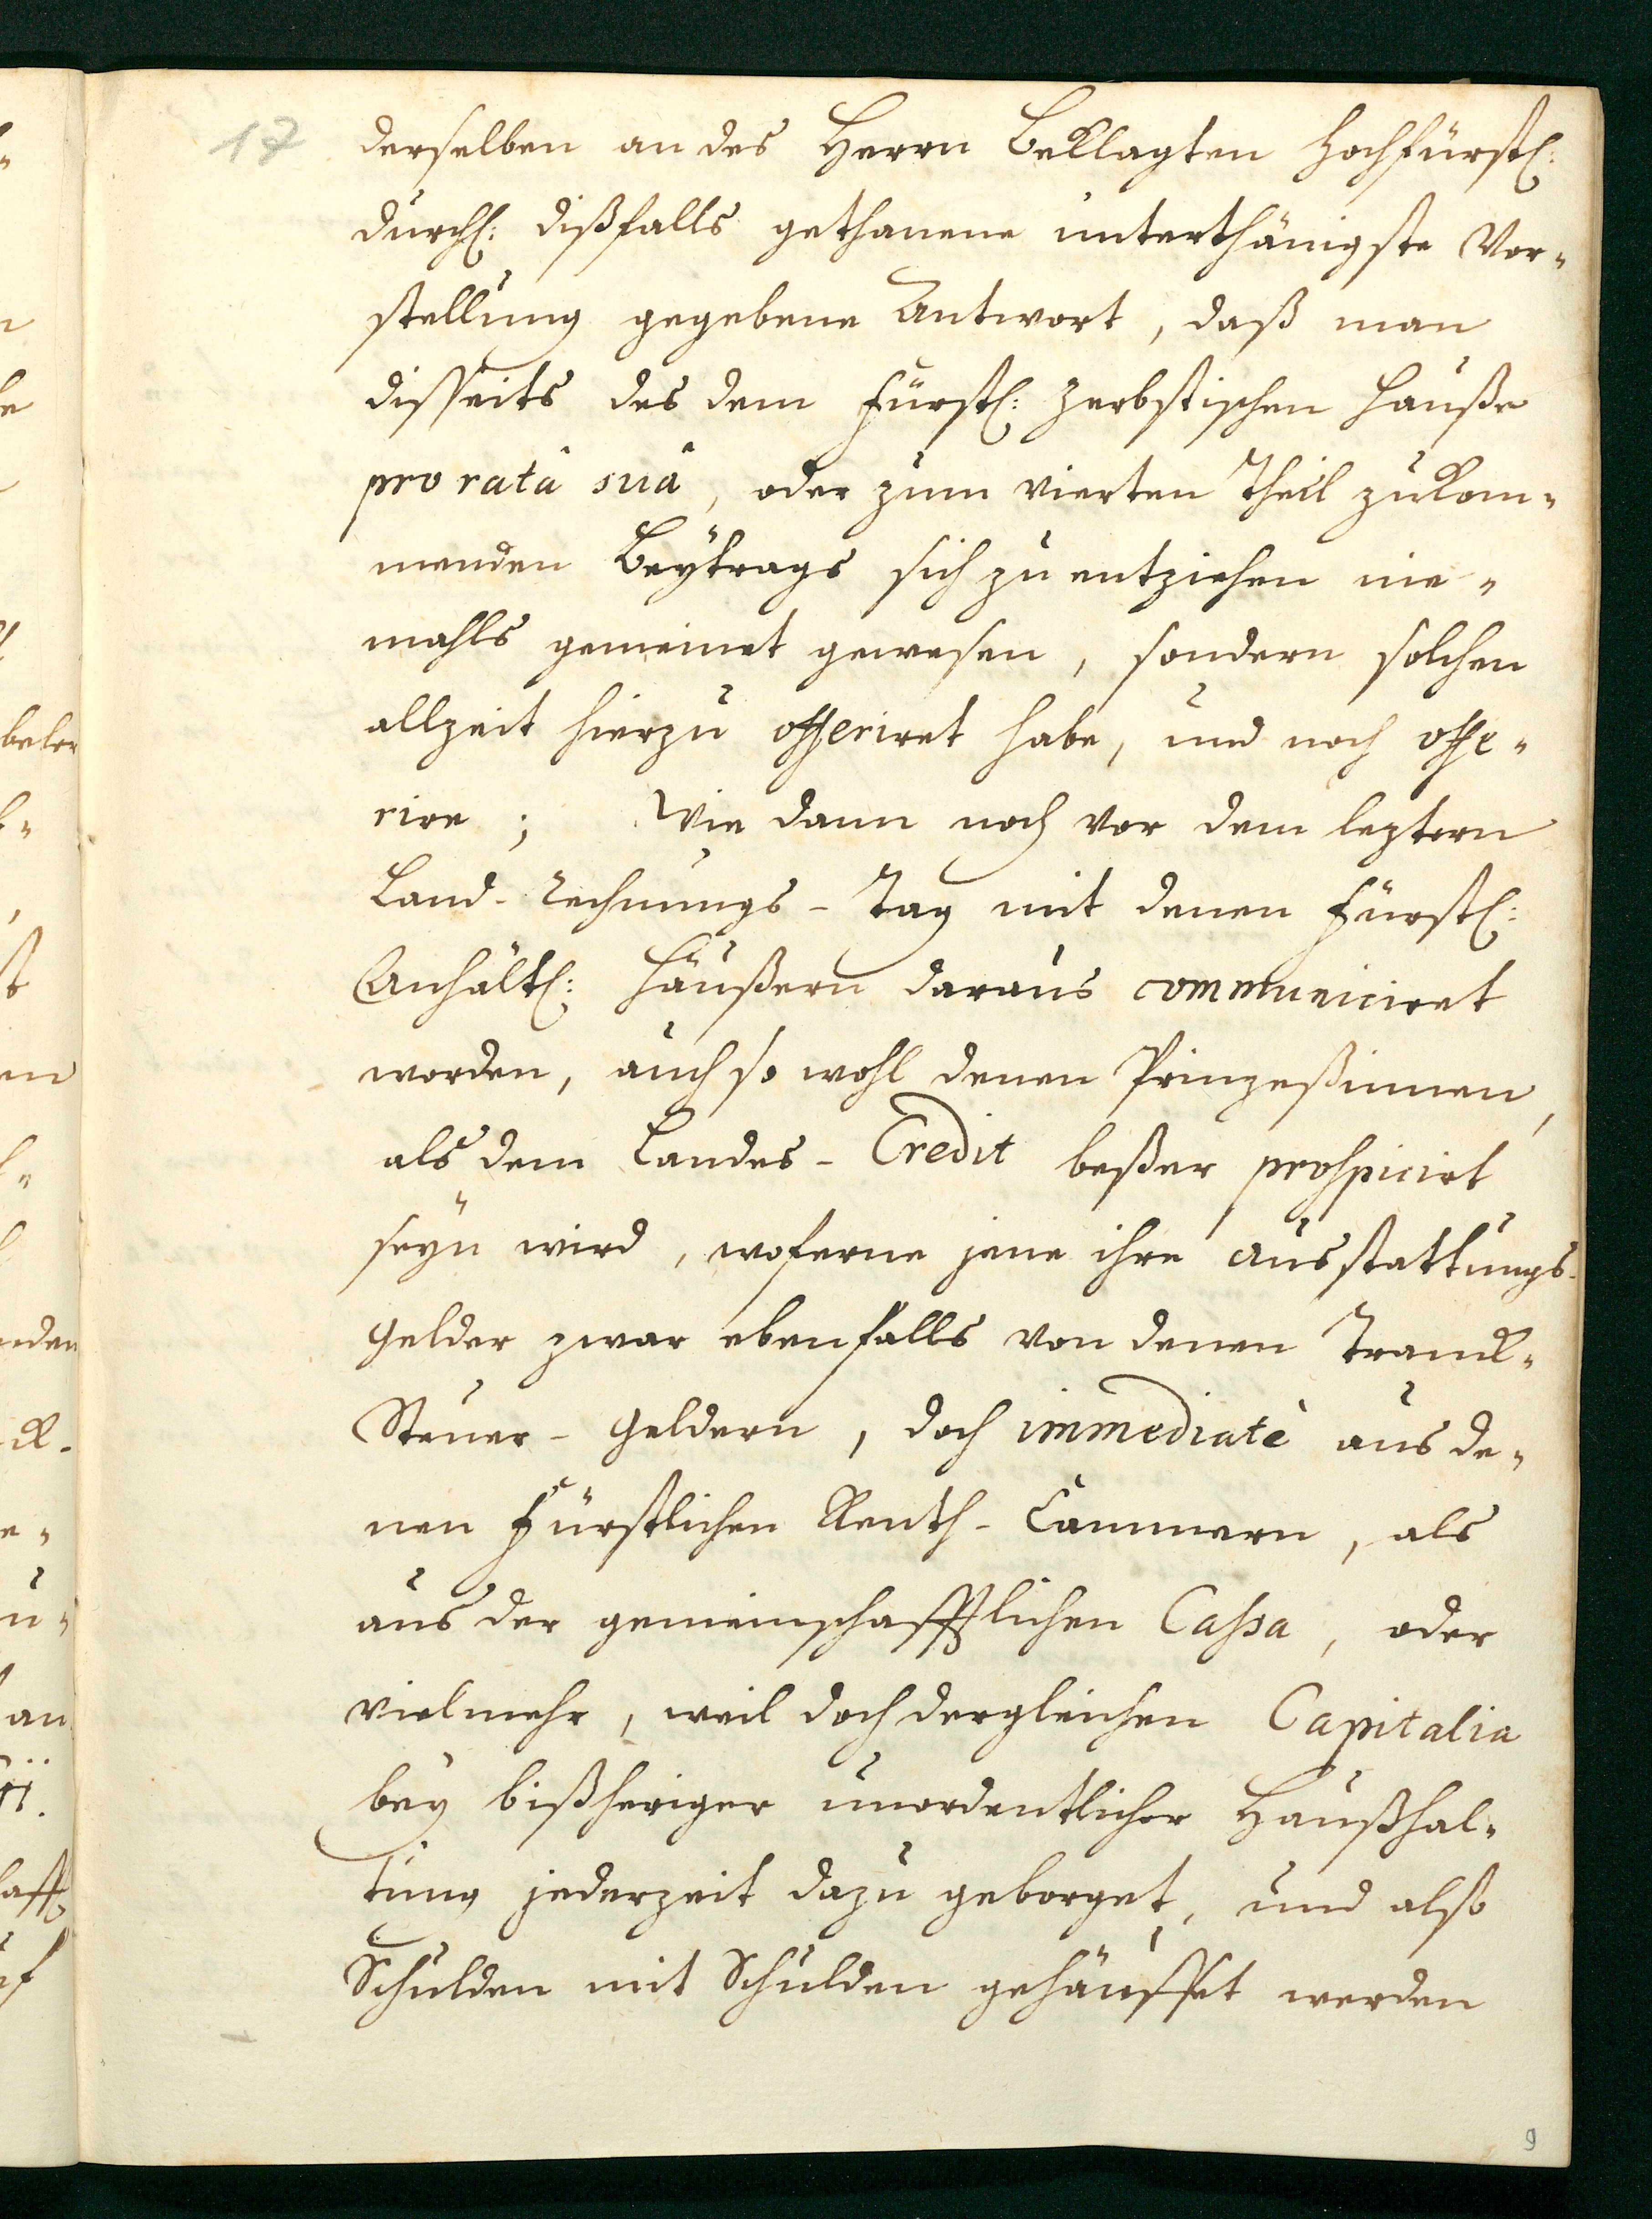 17
derselben an des Herrn Beklagten Hochfürstl:
Durchl: dißfalls gethanene unterthänigste Vor-
stellung gegebene Antwort, daß man
disseits des dem Fürstl: Zerbstischen Hauße
pro ratâ suâ, oder zum vierten Theil zukom-
menden Beytrags sich zu entziehen nie-
mahls gemeinet gewesen, sondern solchen
allzeit hierzu offeriret habe, und noch offe-
rire; Wie dann noch vor dem leztern
Land-Rechnungs-Tag mit denen Fürstl:
Anhältl: Häußern daraus communiciret
worden, auch so wohl denen Prinzeßinnen,
als dem Landes-Credit beßer prospicirt
seyn wird, woferne jene ihre Ausstattungs-
Gelder zwar ebenfalls von denen Tranck-
Steuer-Geldern, doch immediatè aus de-
nen Fürstlichen Renth-Cammern, als
aus der gemeinschafftlichen Cassa, oder
vielmehr, weil doch dergleichen Capitalia
bey bißheriger unordentlicher Haußhal-
tung jederzeit dazu geborget, und also
Schulden mit Schulden gehäuffet werden
9